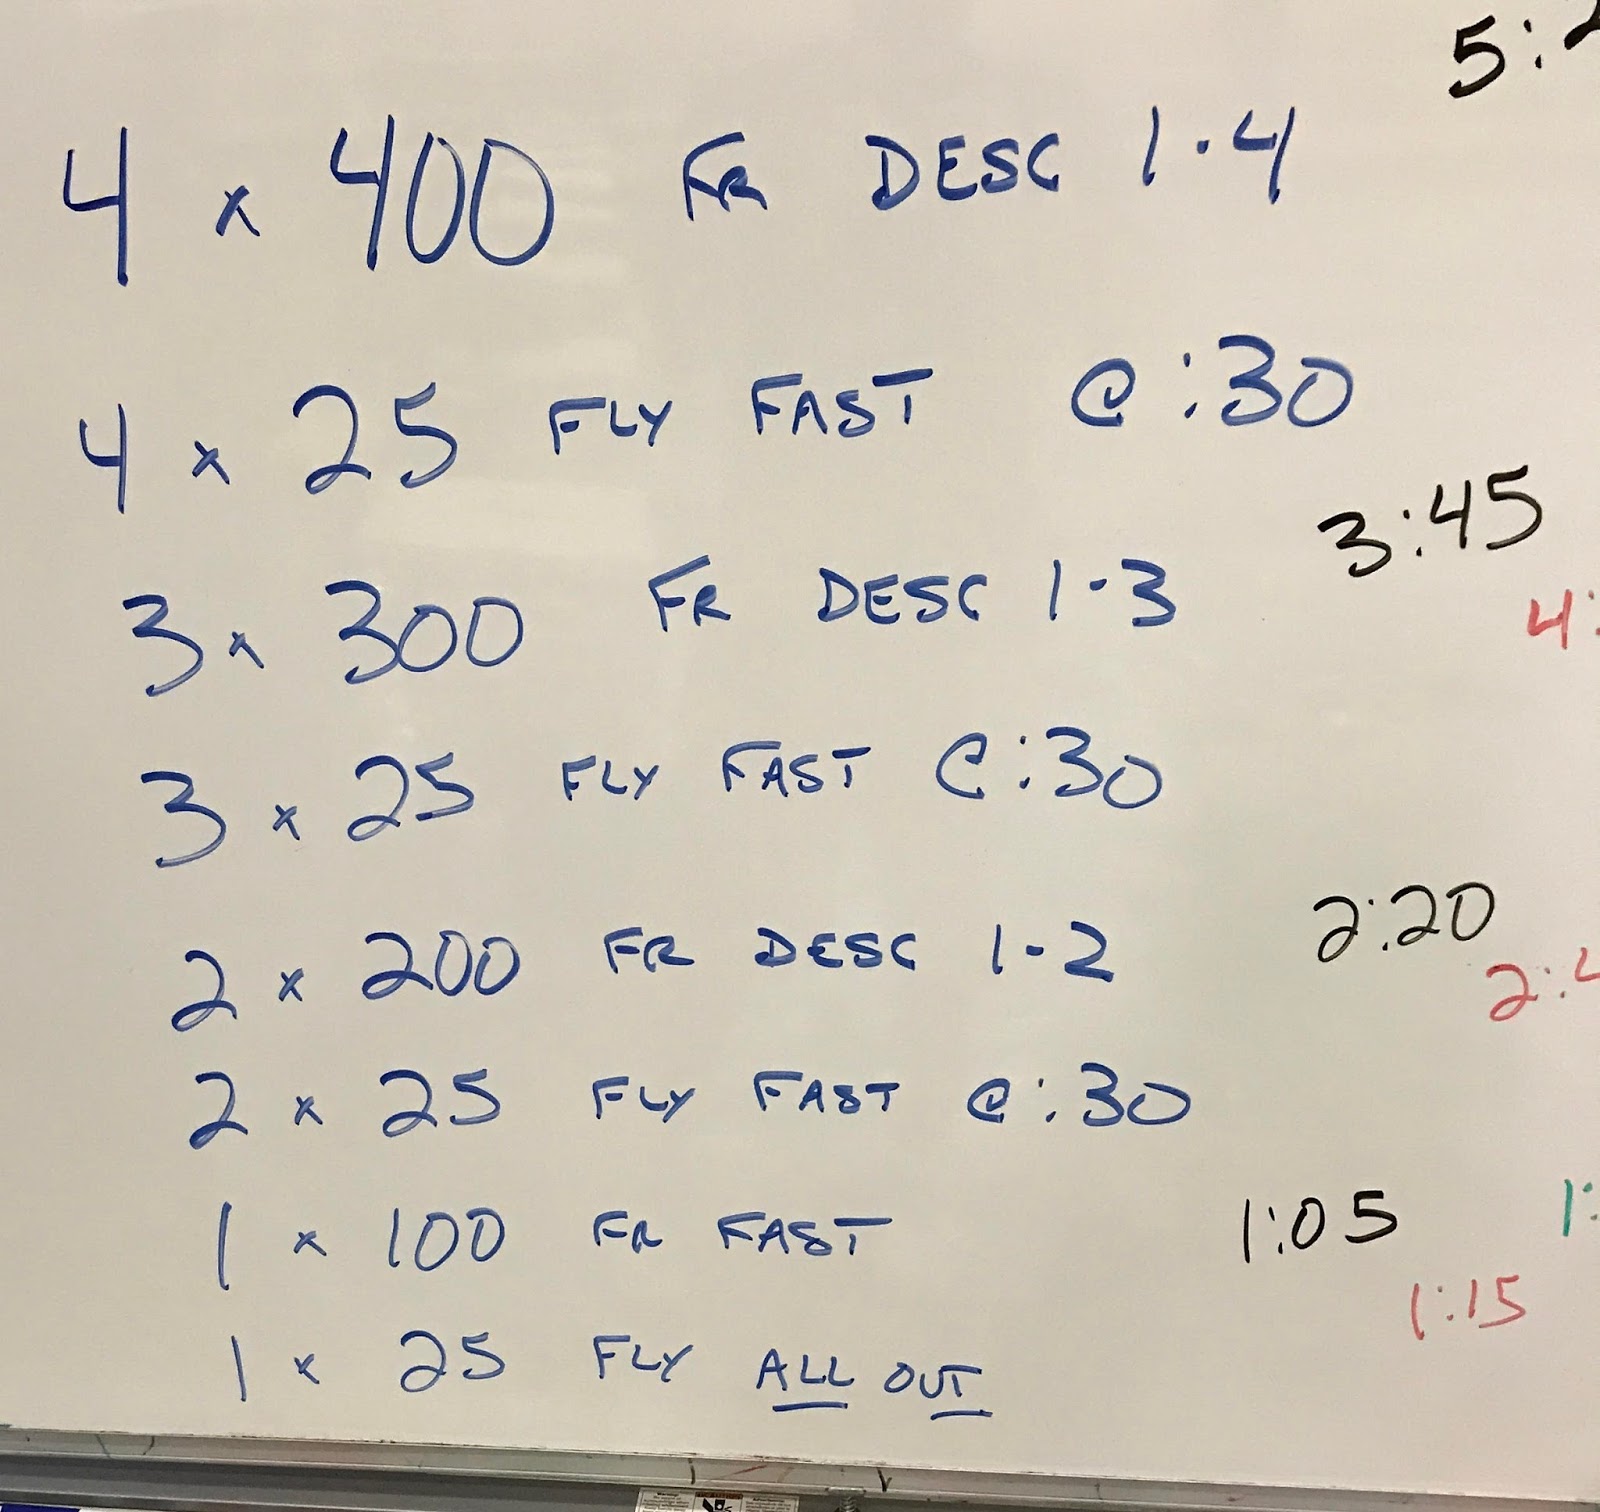 5:
4 x 400 FR DESC 1-4
4 x 25 FLY FAST @ :30
3:45
3 x 300 FR DESC 1-3
4:
3 x 25 FLY FAST @ :30
2:20
2 x 200 FR DESC 1-2
2:4
2 x 25 FLY FAST @ :30
1 x 100 FR FAST 1:05 1:
1:15
1 x 25 FLY ALL OUT